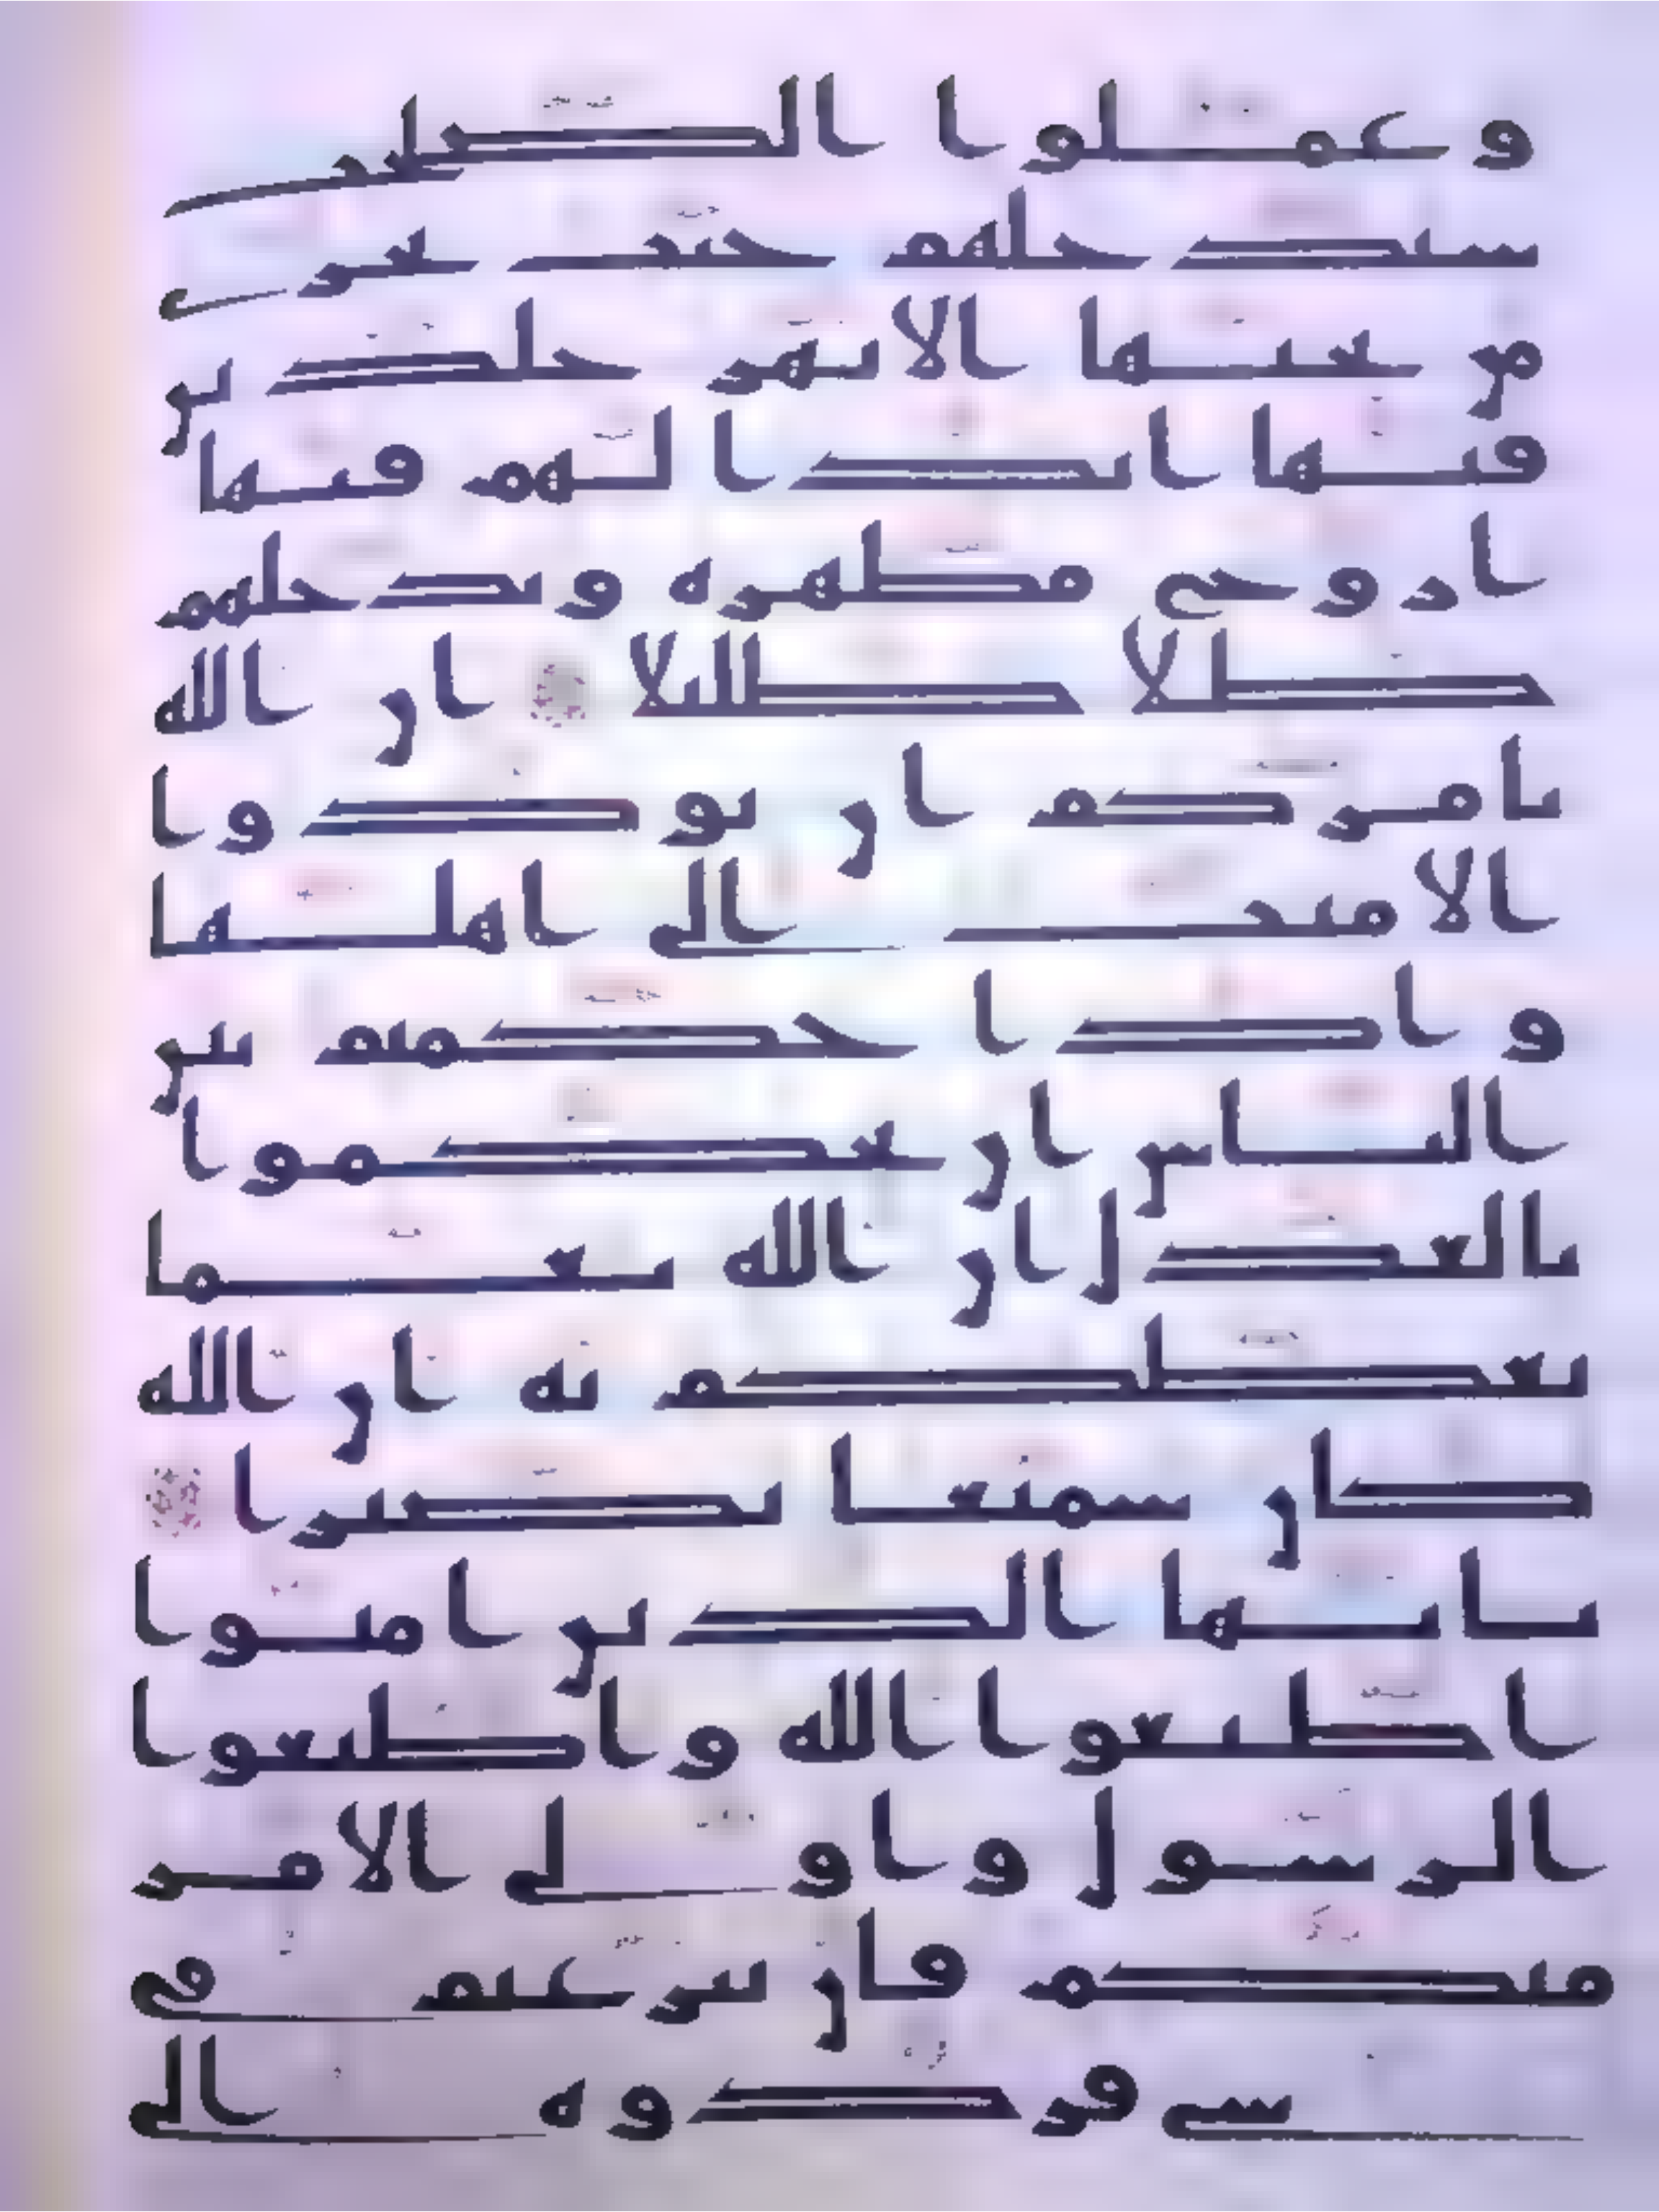 وعملوا الصلحت
سندخلهم جنت تجرى
من تحتها الانهر خلدين
فيها ابدا لهم فيها
ازوج مطهره وندخلهم
ظلا ظليلا ان الله
يامركم ان تودوا
الامنت الى اهلها
واذا حكمتم بين
الناس ان تحكموا
بالعدل ان الله نعما
يعظكم به ان الله
كان سميعا بصيرا
يايها الذين امنوا
اطيعوا الله واطيعوا
الرسول واولى الامر
منكم فان تنزعتم فى
شى فردوه الى